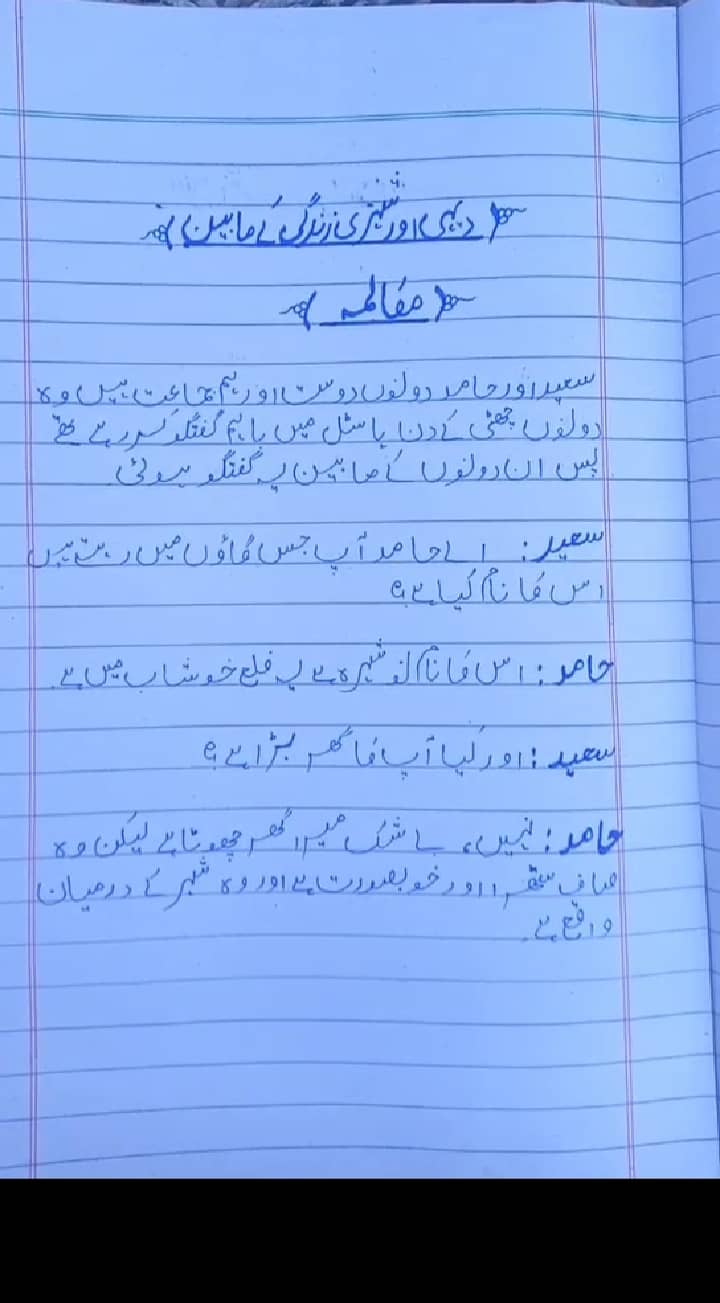 دیہی اور شہری زندگی کے مابین
مقالمہ
سعید اور حامد دونوں دوست اور ہم جماعت ہیں وہ
دونوں چھٹی کے دن ہاسٹل میں باہم گفتگو کر رہے تھے
پس ان دونوں کے مابین یہ گفتگو ہوئی
سعید: اے حامد آپ جس گاؤں میں رہتے ہیں
اس کا نام کیا ہے؟
حامد: اس کا نام نوشہرہ ہے یہ ضلع خوشاب میں ہے۔
سعید: اور کیا آپ کا گھر بڑا ہے؟
حامد: نہیں، بے شک میرا گھر چھوٹا ہے لیکن وہ
صاف ستھرا اور خوبصورت ہے اور وہ شہر کے درمیان
واقع ہے۔